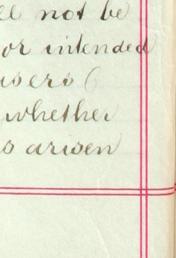 not be
or intended
users (
whether
s arisen